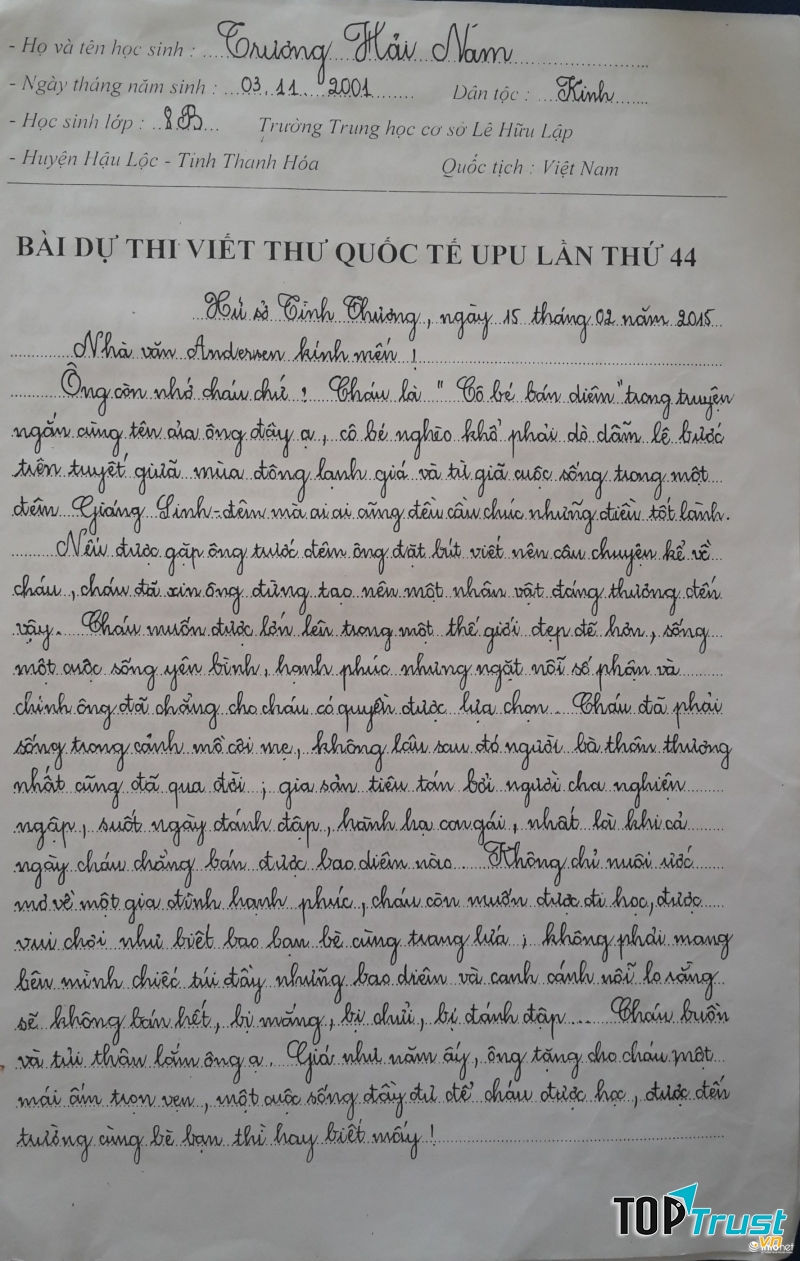 - Họ và tên học sinh : Trương Hải Nam
- Ngày tháng năm sinh : 03.11.2001 Dân tộc : Kinh
- Học sinh lớp : 8B Trường Trung học cơ sở Lê Hữu Lập
- Huyện Hậu Lộc - Tỉnh Thanh Hóa Quốc tịch : Việt Nam
BÀI DỰ THI VIẾT THƯ QUỐC TẾ UPU LẦN THỨ 44
Xứ sở Tình Thương, ngày 15 tháng 02 năm 2015
Nhà văn Andersen kính mến !
Ông còn nhớ cháu chứ ? Cháu là " Cô bé bán diêm" trong truyện
ngắn cùng tên của ông đây ạ, cô bé nghèo khổ phải dò dẫm lê bước
trên tuyết giữa mùa đông lạnh giá và từ giã cuộc sống trong một
đêm Giáng Sinh - đêm mà ai ai cũng đều cầu chúc những điều tốt lành.
Nếu được gặp ông trước đêm ông đặt bút viết nên câu chuyện kể về
cháu, cháu đã xin ông đừng tạo nên một nhân vật đáng thương đến
vậy. Cháu muốn được lớn lên trong một thế giới đẹp đẽ hơn, sống
một cuộc sống yên bình, hạnh phúc nhưng ngặt nỗi số phận và
chính ông đã chẳng cho cháu có quyền được lựa chọn. Cháu đã phải
sống trong cảnh mồ côi mẹ, không lâu sau đó người bà thân thương
nhất cũng đã qua đời ; gia sản tiêu tán bởi người cha nghiện
ngập, suốt ngày đánh đập, hành hạ con gái, nhất là khi cả
ngày cháu chẳng bán được bao diêm nào... Không chỉ nuôi ước
mơ về một gia đình hạnh phúc, cháu còn muốn được đi học, được
vui chơi như biết bao bạn bè cùng trang lứa ; không phải mang
bên mình chiếc túi đầy những bao diêm và canh cánh nỗi lo rằng
sẽ không bán hết, bị mắng, bị chửi, bị đánh đập... Cháu buồn
và tủi thân lắm ông ạ. Giá như năm ấy, ông tặng cho cháu một
mái ấm trọn vẹn, một cuộc sống đầy đủ để cháu được học, được đến
trường cùng bè bạn thì hay biết mấy !
TOPTrust
.vn
infonet